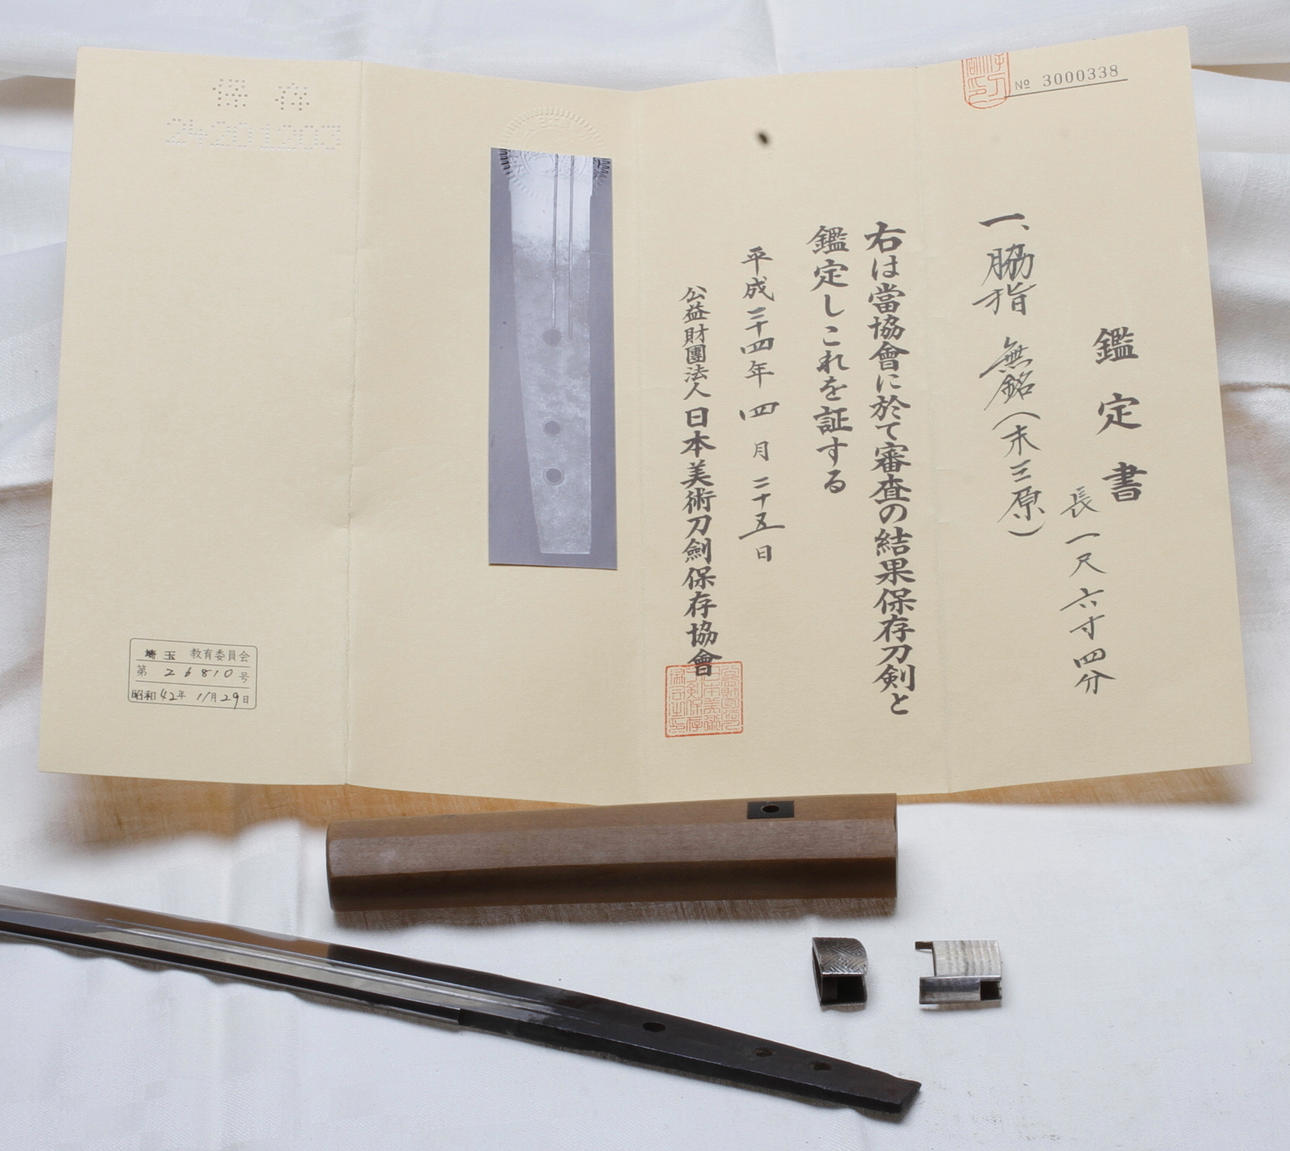 № 3000338
鑑定書
長一尺六寸四分
一、脇指 無銘(末三原)
右は當協會に於て審査の結果保存刀剣と
鑑定しこれを証する
平成二十四年四月二十五日
公益財團法人日本美術刀劍保存協會
保存
24201203
埼玉 教育委員会
第 26810 号
昭和42年 11月29日